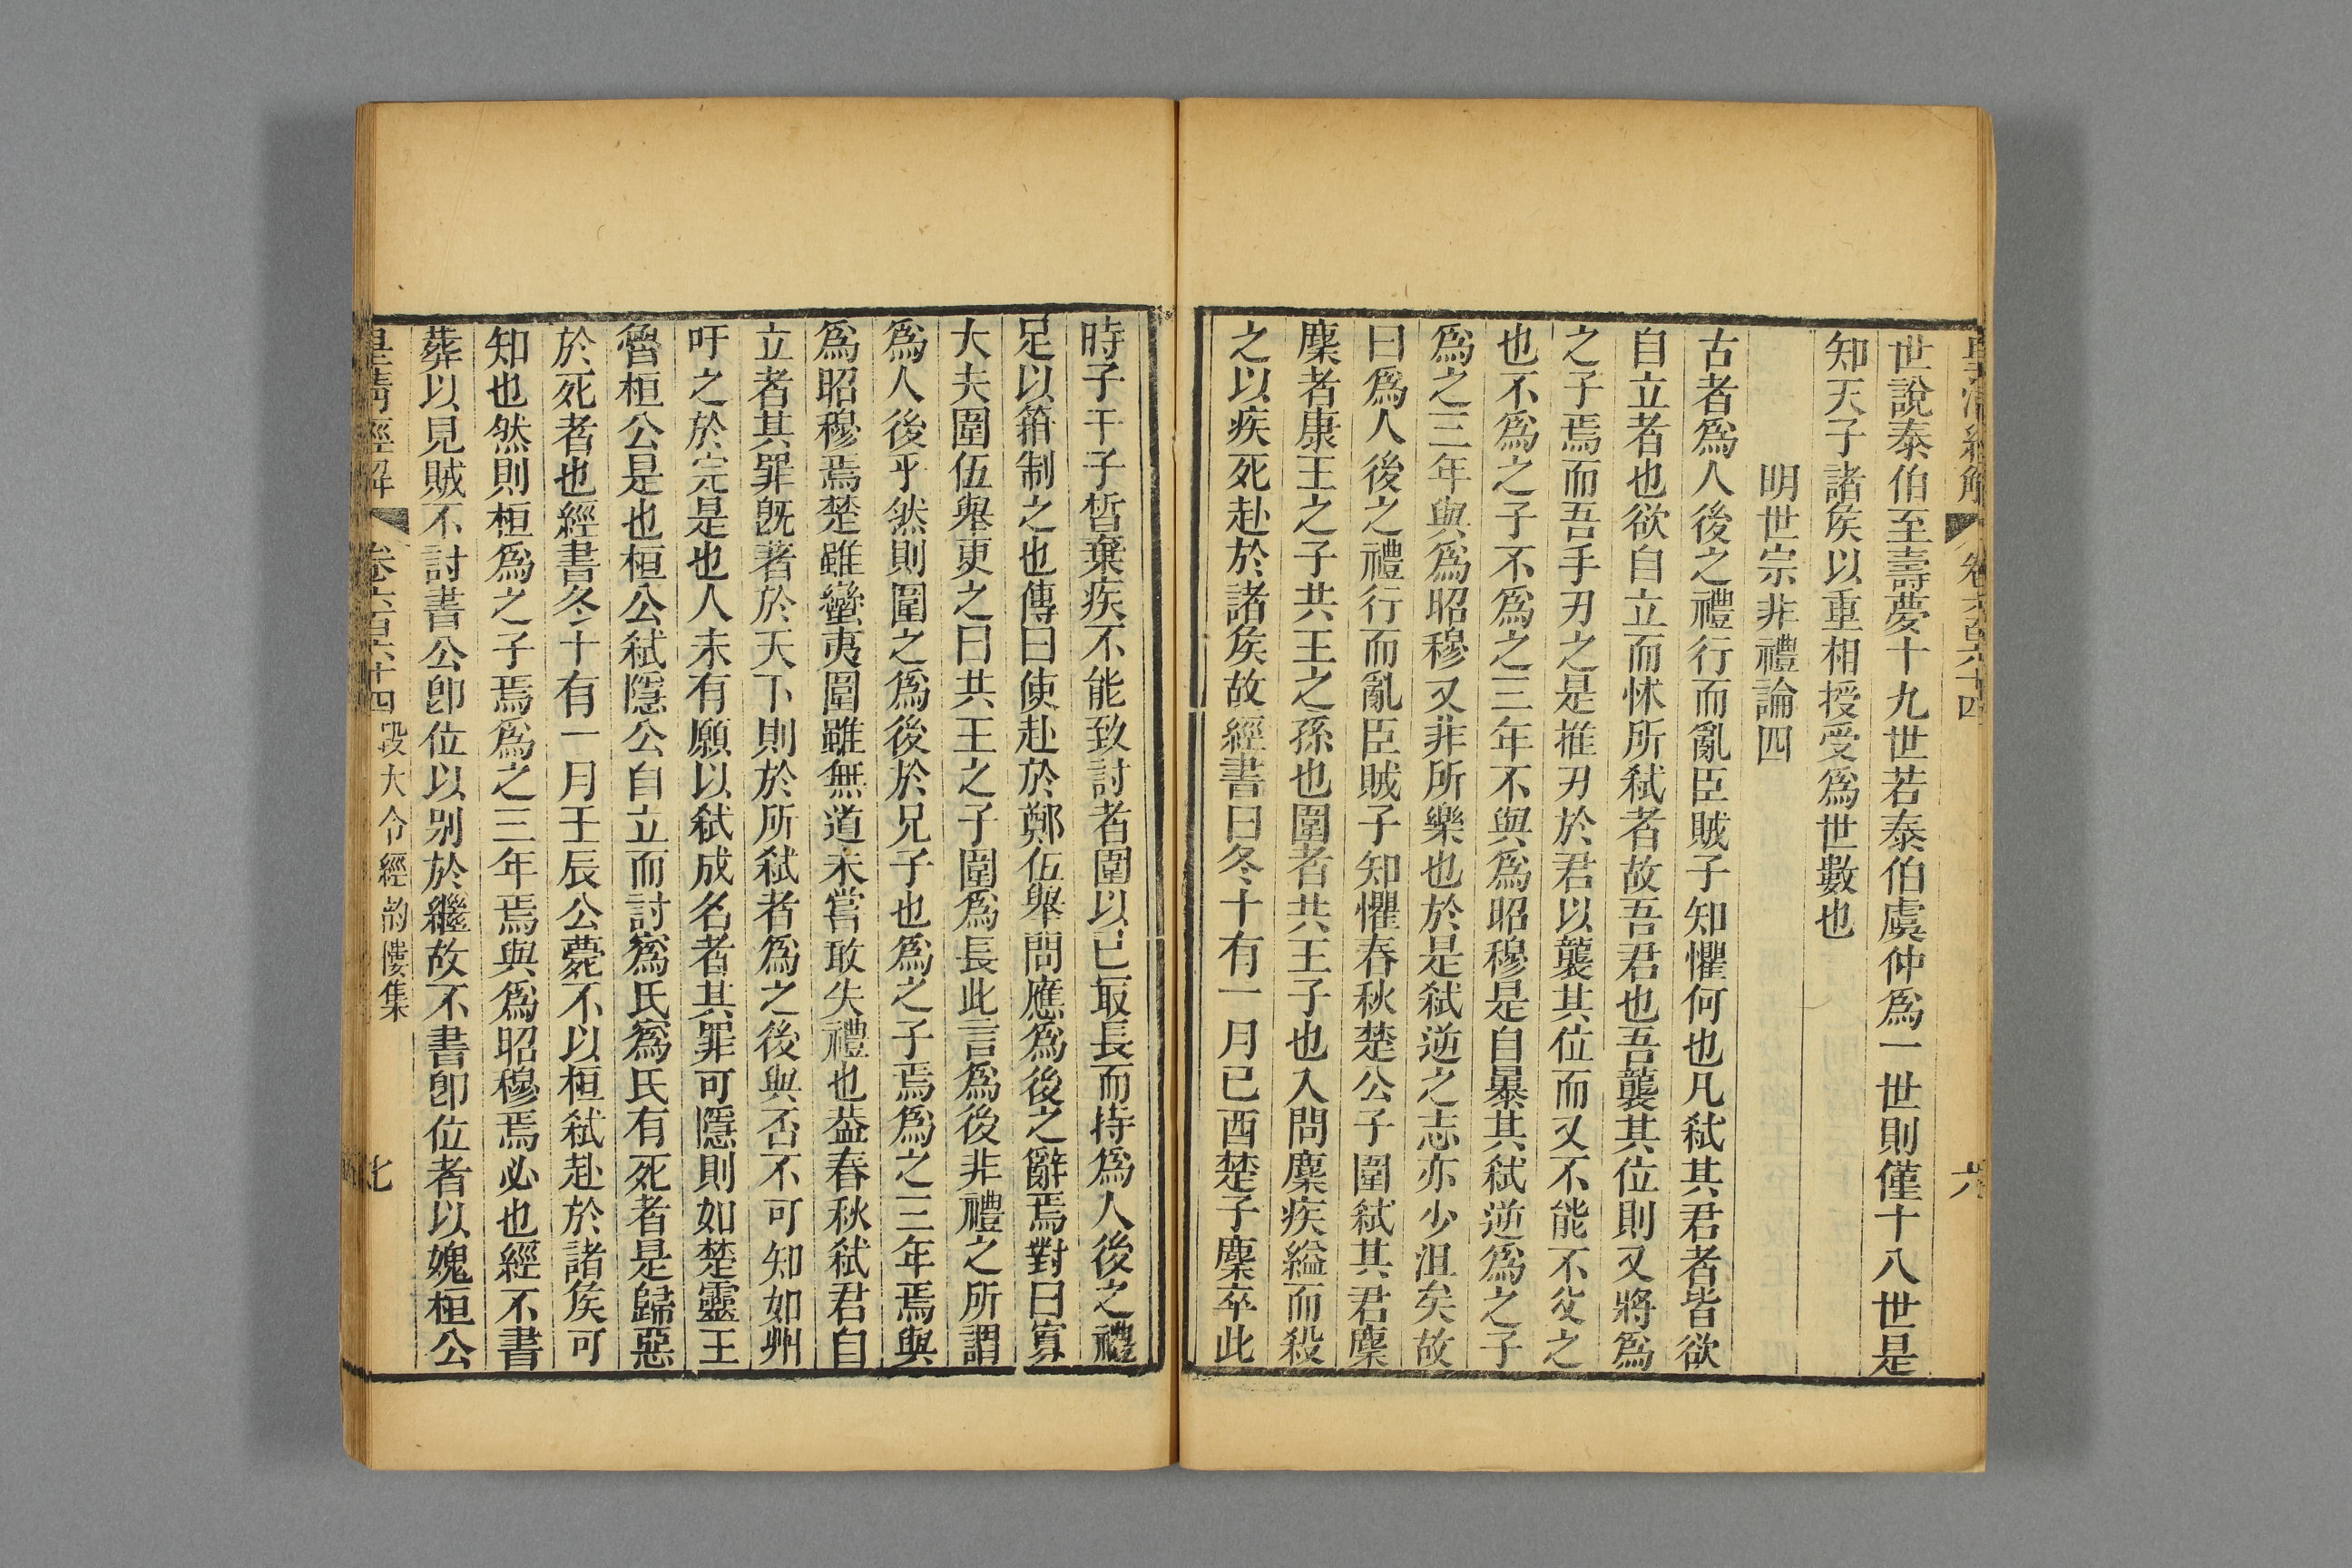 皇淸經解 卷六百六十四 六
世說泰伯至壽夢十九世若泰伯虞仲爲一世則僅十八世是
知天子諸矦以重相授受爲世數也
明世宗非禮論四
古者爲人後之禮行而亂臣賊子知懼何也凡弑其君者皆欲
自立者也欲自立而怵所弑者故吾君也吾襲其位則又將爲
之子焉而吾手刃之是推刃於君以襲其位而又不能不父之
也不爲之子不爲之三年不與爲昭穆是自暴其弑逆爲之子
爲之三年與爲昭穆又非所樂也於是弑逆之志亦少沮矣故
曰爲人後之禮行而亂臣賊子知懼春秋楚公子圍弑其君麇
麇者康王之子共王之孫也圍者共王子也入問麇疾縊而殺
之以疾死赴於諸矦故經書曰冬十有一月己酉楚子麇卒此
時子干子晳棄疾不能致討者圍以已㝡長而持爲人後之禮
足以箝制之也傳曰使赴於鄭伍舉問應爲後之辭焉對曰寡
大夫圍伍舉更之曰共王之子圍爲長此言爲後非禮之所謂
爲人後乎然則圍之爲後於兄子也爲之子焉爲之三年焉與
爲昭穆焉楚雖蠻夷圍雖無道未嘗敢失禮也葢春秋弑君自
立者其罪旣著於天下則於所弑者爲之後與否不可知如州
吁之於完是也人未有願以弑成名者其罪可隱則如楚靈王
魯桓公是也桓公弑隱公自立而討寪氏寪氏有死者是歸惡
於死者也經書冬十有一月壬辰公薨不以桓弑赴於諸矦可
知也然則桓爲之子焉爲之三年焉與爲昭穆焉必也經不書
葬以見賊不討書公卽位以别於繼故不書卽位者以媿桓公
皇淸經解 卷六百六十四 段大令經韵樓集 七